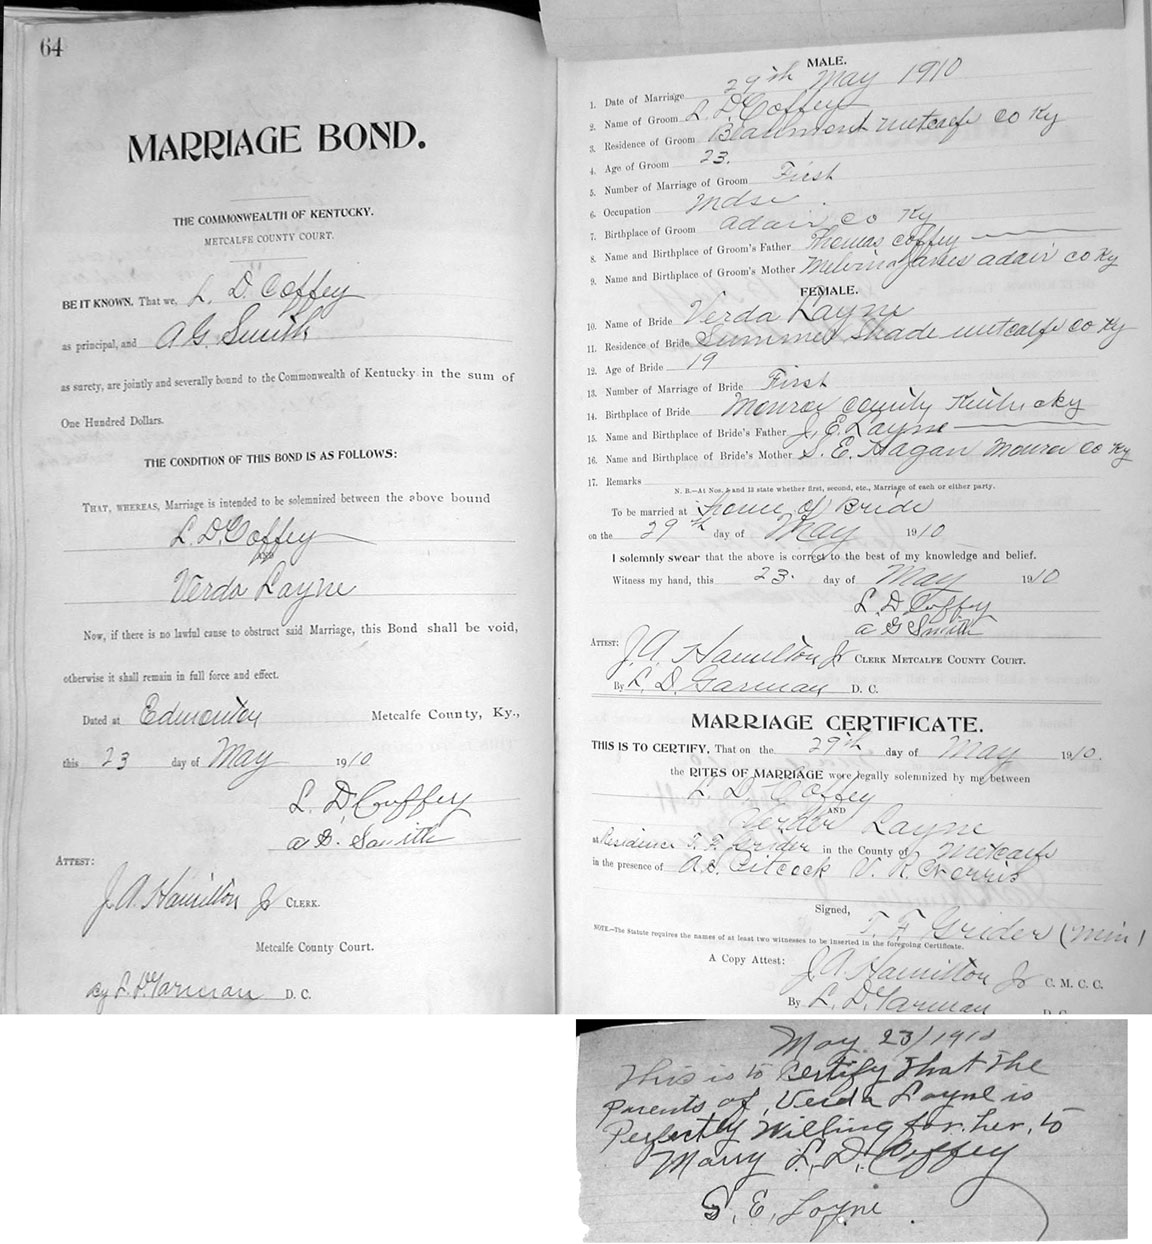 64
MARRIAGE BOND.
THE COMMONWEALTH OF KENTUCKY.
METCALFE COUNTY COURT.
BE IT KNOWN, That we, L. D. Coffey
as principal, and A G. Smith
as surety, are jointly and severally bound to the Commonwealth of Kentucky in the sum of
One Hundred Dollars.
THE CONDITION OF THIS BOND IS AS FOLLOWS:
THAT, WHEREAS, Marriage is intended to be solemnized between the above bound
L. D. Coffey
AND
Verda Layne
Now, if there is no lawful cause to obstruct said Marriage, this Bond shall be void,
otherwise it shall remain in full force and effect.
Dated at Edmonton Metcalfe County, Ky.,
this 23 day of May 1910
L. D. Coffey
A G. Smith
ATTEST:
J. A. Hamilton Jr CLERK.
Metcalfe County Court.
By L. D. Garman D. C.
MALE.
1. Date of Marriage 29th May 1910
2. Name of Groom L. D. Coffey
3. Residence of Groom Beaumont Metcalfe Co Ky
4. Age of Groom 23.
5. Number of Marriage of Groom First
6. Occupation Mdse
7. Birthplace of Groom Adair Co Ky
8. Name and Birthplace of Groom's Father Thomas Coffey
9. Name and Birthplace of Groom's Mother Melvina Janes Adair Co Ky
FEMALE.
10. Name of Bride Verda Layne
11. Residence of Bride Summer Shade Metcalfe Co Ky
12. Age of Bride 19
13. Number of Marriage of Bride First
14. Birthplace of Bride Monroe County Kentucky
15. Name and Birthplace of Bride's Father J. E. Layne
16. Name and Birthplace of Bride's Mother S. E. Hagan Monroe Co Ky
17. Remarks
N. B.—At Nos. 5 and 13 state whether first, second, etc., Marriage of each or either party.
To be married at home of Bride
on the 29th day of May 1910
I solemnly swear that the above is correct to the best of my knowledge and belief.
Witness my hand, this 23. day of May 1910
L. D. Coffey
A G Smith
ATTEST:
J. A. Hamilton Jr CLERK METCALFE COUNTY COURT.
By L. D. Garman D. C.
MARRIAGE CERTIFICATE.
THIS IS TO CERTIFY, That on the 29th day of May 1910.
the RITES OF MARRIAGE were legally solemnized by me between
L. D. Coffey
AND
Verder Layne
at Residence T. F. Grider in the County of Metcalfe
in the presence of A. S. Pitcock V. R. Norris
Signed,
T. F. Grider (Min)
NOTE.—The Statute requires the names of at least two witnesses to be inserted in the foregoing Certificate.
A Copy Attest:
J. A. Hamilton Jr C. M. C. C.
By L. D. Garman D. C.
May 23/1910
This is to Certify that the
Parents of, Verda Layne is
Perfectly Willing for her, to
Marry L. D. Coffey
S. E, Layne